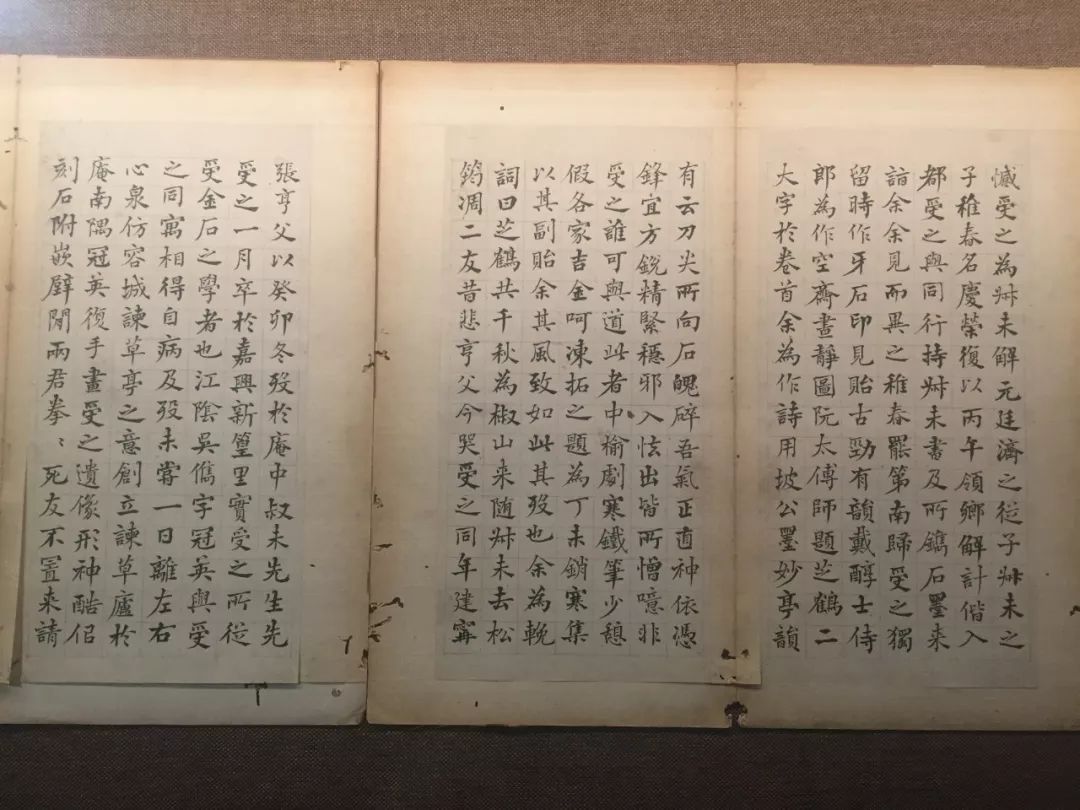 憾受之為叔未解元廷濟之從子叔未之
子稚春名慶榮復以丙午領鄉解計偕入
都受之與同行持叔未書及所鐫石墨来
詣余余見而異之稚春罷第南歸受之獨
留時作牙石印見貽古勁有韻戴醇士侍
郎為作空齋晝靜圖阮太傅師題芝鶴二
大字於卷首余為作詩用坡公墨妙亭韻
有云刀尖所向石魄碎吾氣正直神依憑
鋒宜方銳精緊穩邪入怯出皆所憎噫非
受之誰可與道此者中榆劇寒鐵筆少憩
假各家吉金呵凍拓之題為丁未銷寒集
以其副貽余其風致如此其歿也余為輓
詞曰芝鶴共千秋為椒山来随叔未去松
筠凋二友昔悲亨父今哭受之同年建甯
張亨父以癸卯冬歿於庵中叔未先生先
受之一月卒於嘉興新篁里實受之所從
受金石之學者也江陰吳儁字冠英與受
之同寓相得自病及歿未嘗一日離左右
心泉仿容城諫草亭之意創立諫草廬於
庵南隅冠英復手畫受之遺像形神酷佀
刻石附嵌壁閒兩君拳〻死友不置来請